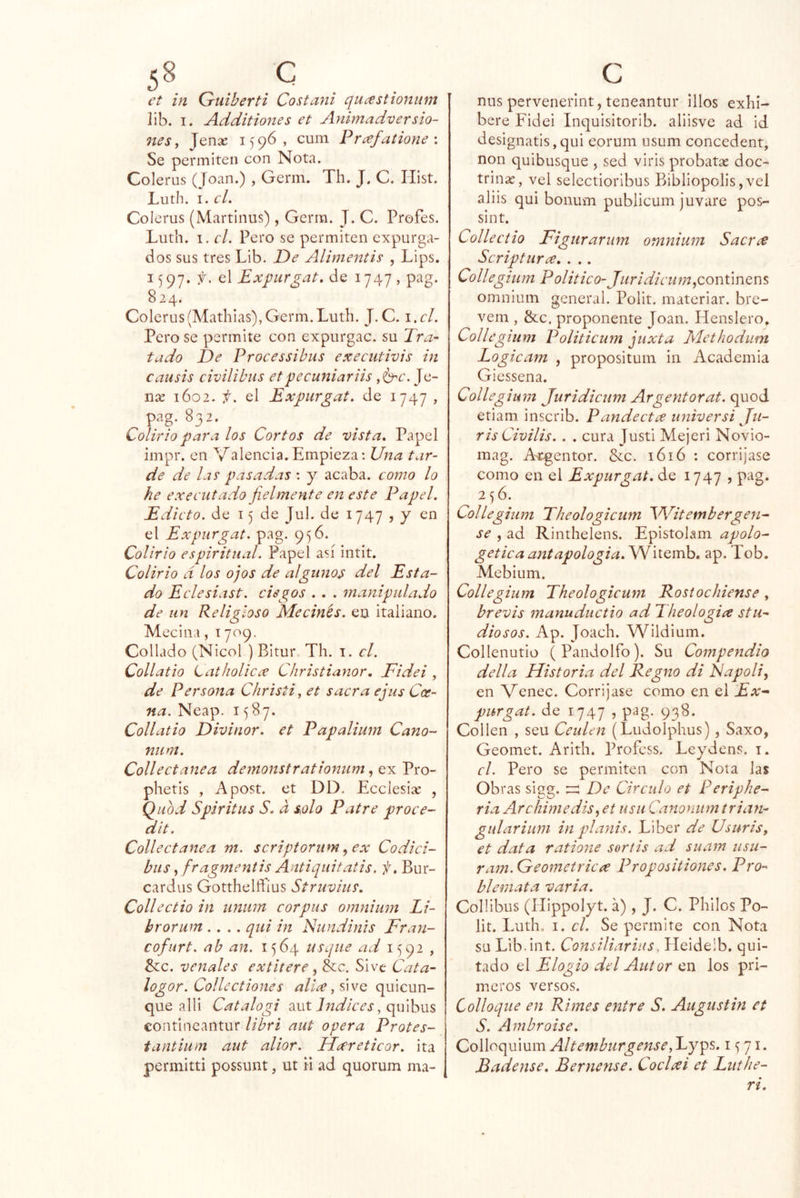 58 C
et in Guiberti Costani quæstionum
lib. 1. Additiones et Animadversio-
nes, Jenæ 1596, cum Præfatione:
Se permiten con Nota.
Colerus (Joan.), Germ. Th. J. C. Hist.
Luth. 1. cl.
Colerus (Martinus), Germ. J. C. Profes.
Luth. 1. cl. Pero se permiten expurga-
dos sus tres Lib. De Alimentis, Lips.
1597. ỹ. el Expurgat. de 1747, pag.
824.
Colerus (Mathias), Germ. Luth. J. C. 1. cl.
Pero se permite con expurgac. su Tra-
tado De Processibus executivis in
causis civilibus et pecuniariis, &c. Je-
næ 1602. ỹ. el Expurgat. de 1747,
pag. 832.
Colirio para los Cortos de vista. Papel
impr. en Valencia. Empieza: Una tar-
de de las pasadas: y acaba. como lo
he executado fielmente en este Papel.
Edicto. de 15 de Jul. de 1747, y en
el Expurgat. pag. 956.
Colirio espiritual. Papel así intit.
Colirio á los ojos de algunos del Esta-
do Eclesiast. ciegos . . . manipulado
de un Religioso Mecinés. en italiano.
Mecina, 1709.
Collado (Nicol) Bitur. Th. 1. cl.
Collatio Catholicæ Christianor. Fidei,
de Persona Christi, et sacra ejus Cœ-
na. Neap. 1587.
Collatio Divinor. et Papalium Cano-
num.
Collectanea demonstrationum, ex Pro-
phetis, Apost. et DD. Ecclesiæ,
Quòd Spiritus S. à solo Patre proce-
dit.
Collectanea m. scriptorum, ex Codici-
bus, fragmentis Antiquitatis. ỹ. Bur-
cardus Gotthelffius Struvius.
Collectio in unum corpus omnium Li-
brorum . . . . qui in Nundinis Fran-
cofurt. ab an. 1564 usque ad 1592,
&c. venales extitere, &c. Sive Cata-
logor. Collectiones aliæ, sive quicun-
que alli Catalogi aut Indices, quibus
contineantur libri aut opera Protes-
tantium aut alior. Hæreticor. ita
permitti possunt, ut ii ad quorum ma-
C
nus pervenerint, teneantur illos exhi-
bere Fidei Inquisitorib. aliisve ad id
designatis, qui eorum usum concedent,
non quibusque, sed viris probatæ doc-
trinæ, vel selectioribus Bibliopolis, vel
aliis qui bonum publicum juvare pos-
sint.
Collectio Figurarum omnium Sacræ
Scripturæ. . . .
Collegium Politico-Juridicum, continens
omnium general. Polit. materiar. bre-
vem, &c. proponente Joan. Henslero.
Collegium Politicum juxta Methodum
Logicam, propositum in Academia
Giessena.
Collegium Juridicum Argentorat. quod
etiam inscrib. Pandectæ universi Ju-
ris Civilis. . . cura Justi Mejeri Novio-
mag. Argentor. &c. 1616: corrijase
como en el Expurgat. de 1747, pag.
256.
Collegium Theologicum Witembergen-
se, ad Rinthelens. Epistolam apolo-
getica antapologia. Witemb. ap. Tob.
Mebium.
Collegium Theologicum Rostochiense,
brevis manuductio ad Theologiæ stu-
diosos. Ap. Joach. Wildium.
Collenutio (Pandolfo). Su Compendio
della Historia del Regno di Napoli,
en Venec. Corrijase como en el Ex-
purgat. de 1747, pag. 938.
Collen, seu Ceulen (Ludolphus), Saxo,
Geomet. Arith. Profess. Leydens. 1.
cl. Pero se permiten con Nota las
Obras sigg. = De Circulo et Periphe-
ria Archimedis, et usu Canonum trian-
gularium in planis. Liber de Usuris,
et data ratione sortis ad suam usu-
ram. Geometricæ Propositiones. Pro-
blemata varia.
Collibus (Hippolyt. à), J. C. Philos Po-
lit. Luth. 1. cl. Se permite con Nota
su Lib. int. Consiliarius. Heidelb. qui-
tado el Elogio del Autor en los pri-
meros versos.
Colloque en Rimes entre S. Augustin et
S. Ambroise.
Colloquium Altemburgense, Lyps. 1571.
Badense. Bernense. Coclæi et Luthe-
ri.